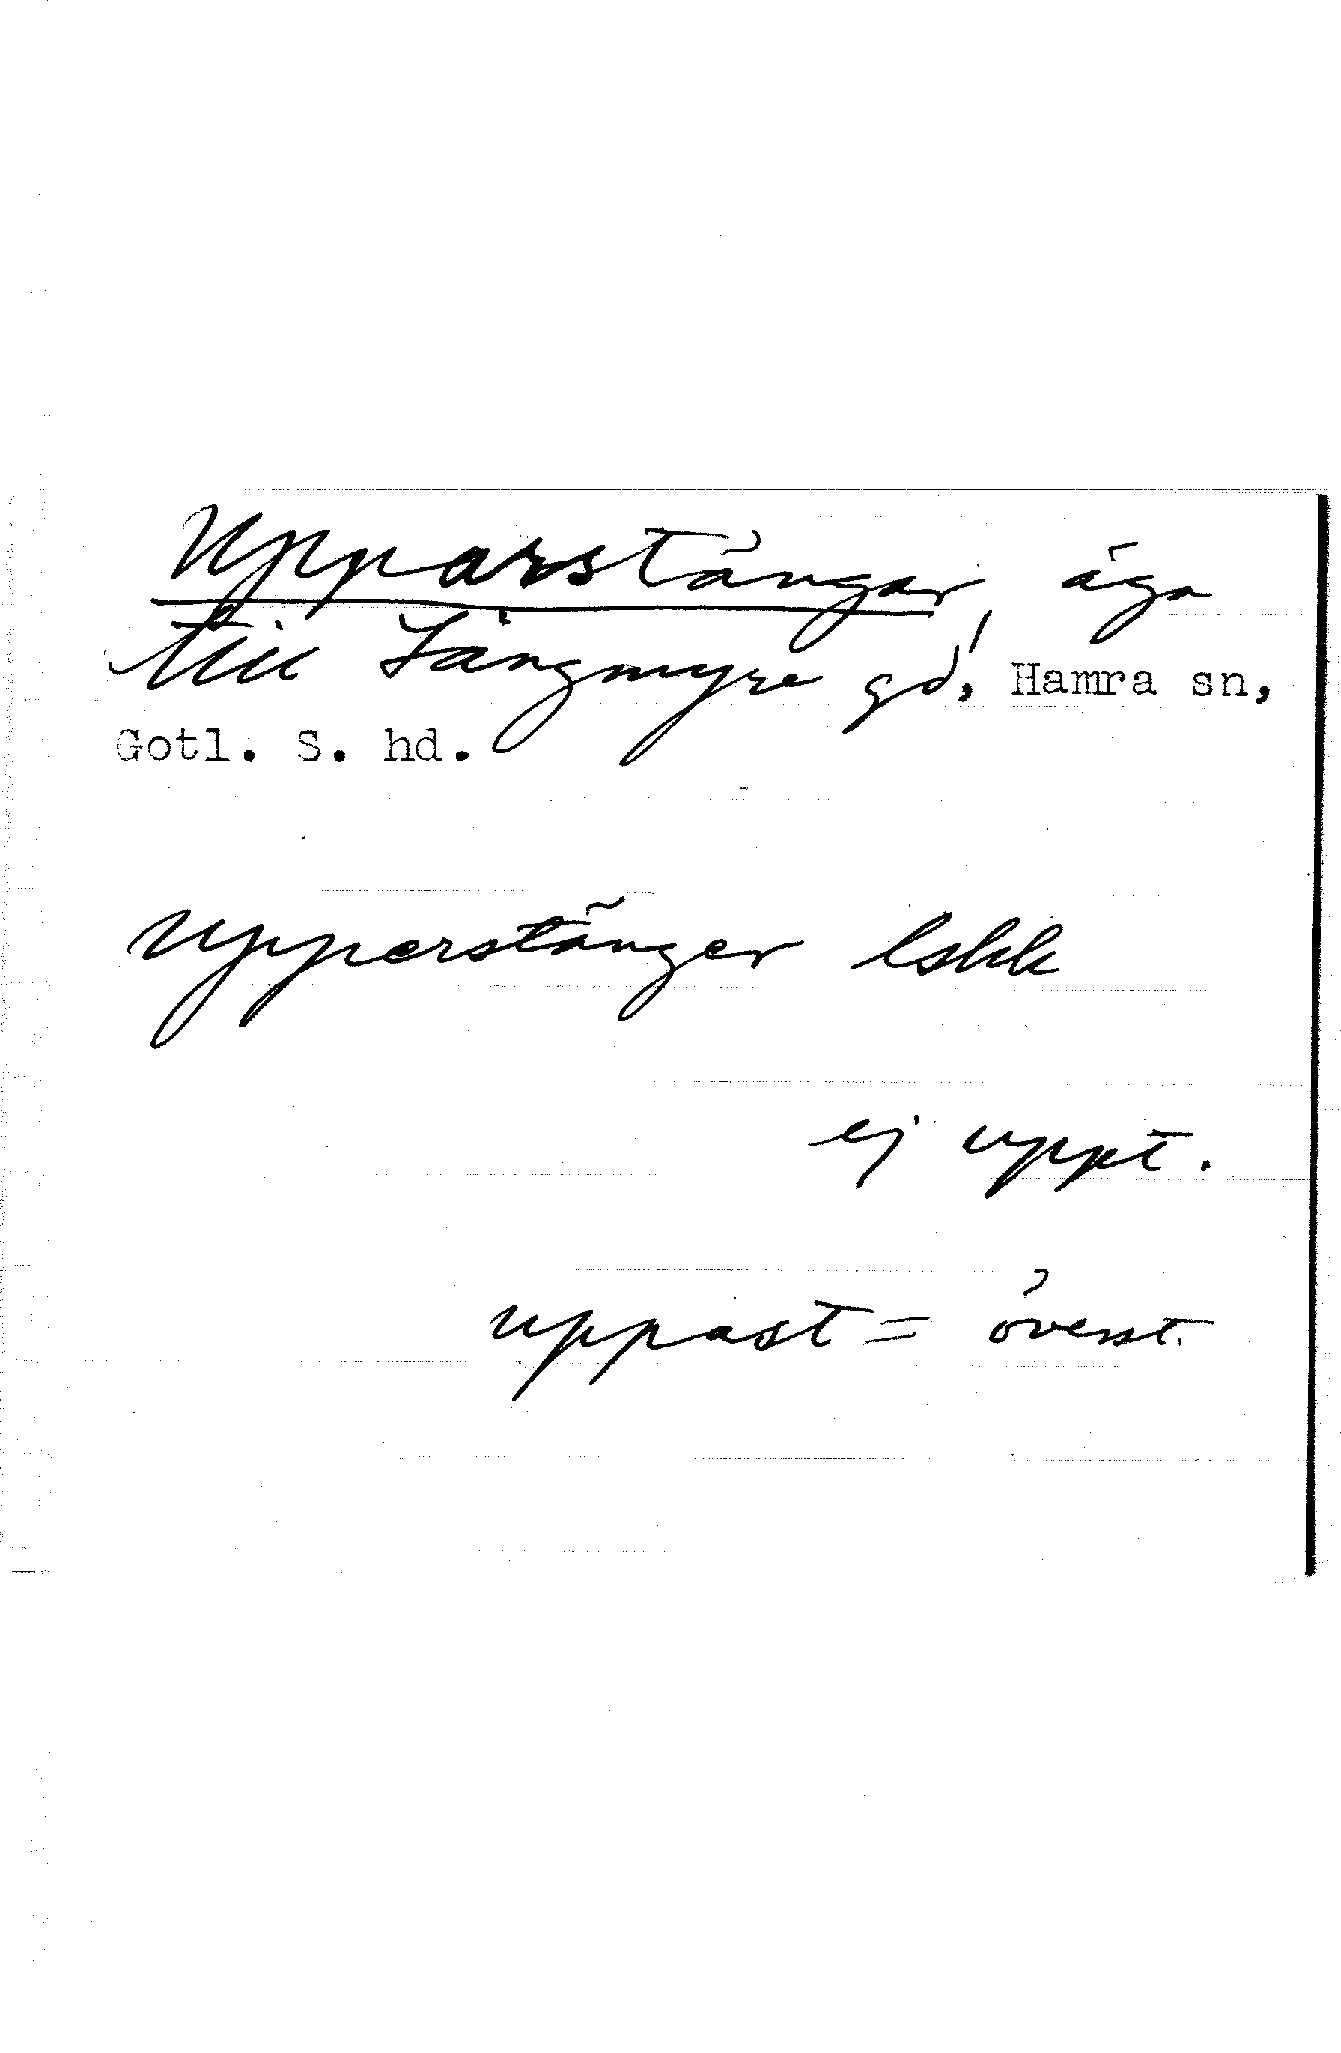 Upparstängar, äga
till Långmyre gd, Hamra sn,
Gotl. S. hd.
Upperstänger lskk
ej uppt.
uppast = överst.